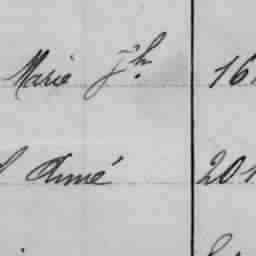 Marie Jh. 16
Aimé 201